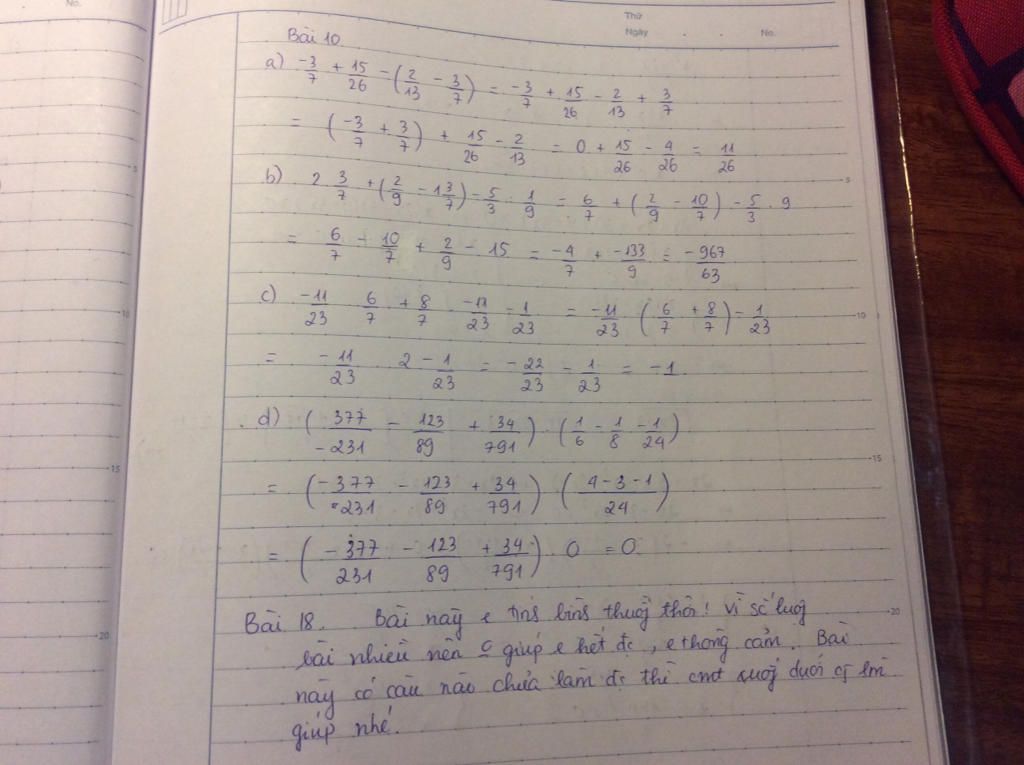 No.
Thứ
Ngày . . No.
Bài 10
a) -3/7 + 15/26 - (2/13 - 3/7) = -3/7 + 15/26 - 2/13 + 3/7
= (-3/7 + 3/7) + 15/26 - 2/13 = 0 + 15/26 - 4/26 = 11/26
b) 2 3/7 + (2/9 - 1 3/7) - 5/3 : 1/9 = 6/7 + (2/9 - 10/7) - 5/3 . 9
= 6/7 - 10/7 + 2/9 - 15 = -4/7 + -133/9 = -967/63
c) -11/23 . 6/7 + 8/7 . -11/23 - 1/23 = -11/23 . (6/7 + 8/7) - 1/23
= -11/23 . 2 - 1/23 = -22/23 - 1/23 = -1.
d) (377/-231 - 123/89 + 34/791) . (1/6 - 1/8 - 1/24)
= (-377/231 - 123/89 + 34/791) . (4-3-1/24)
= (-377/231 - 123/89 + 34/791) . 0 = 0.
Bài 18. Bài này e thôi! Vì số
bài nhiều nên giúp e hết đc, e thông cảm. Bài
này có câu nào chưa làm đc thì cmt dưới
giúp nhé.
5
10
15
20
5
10
15
20